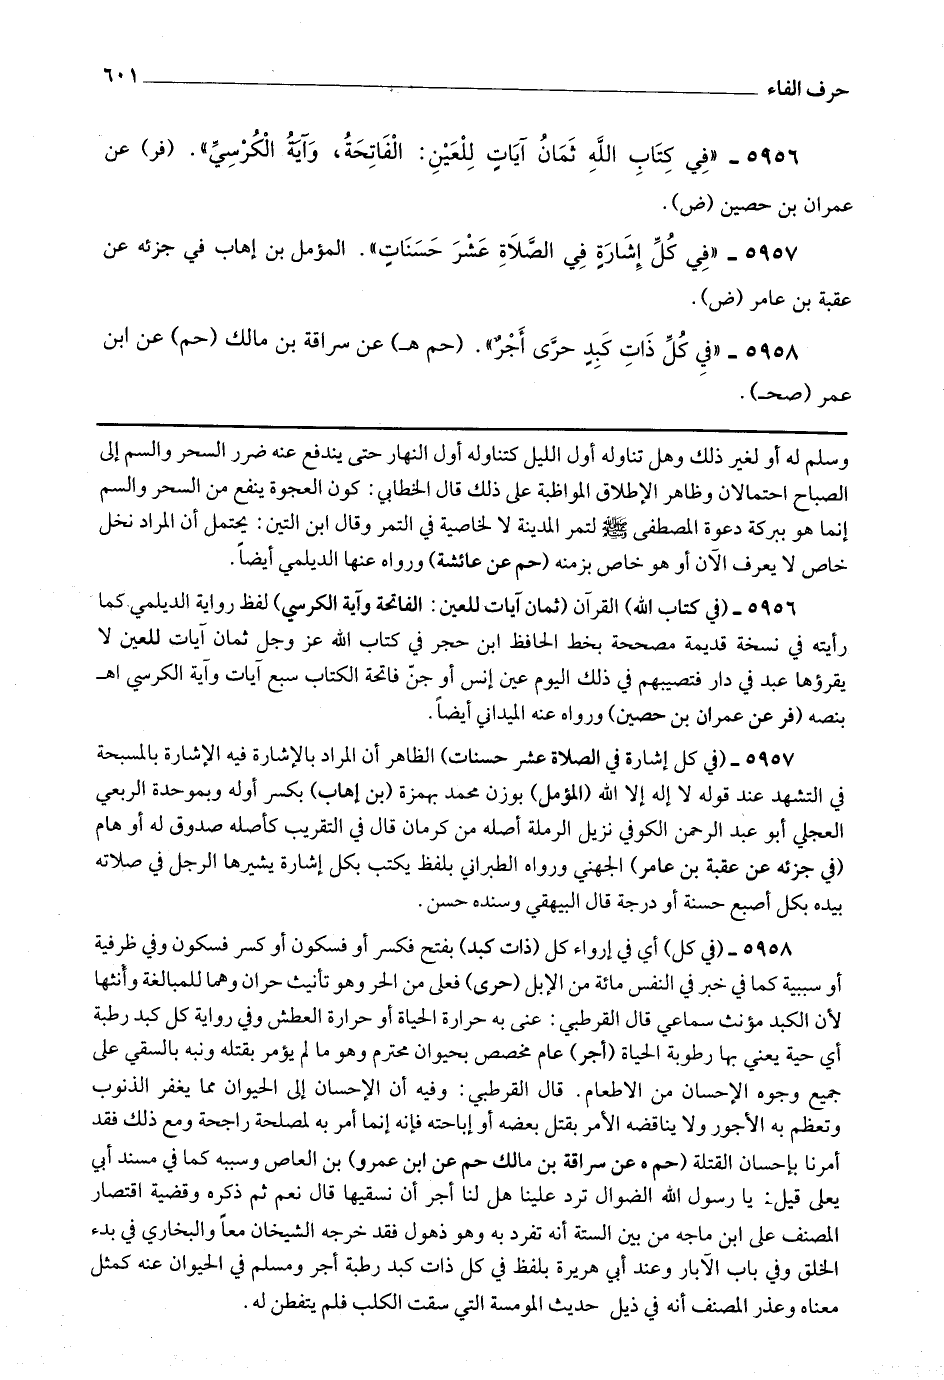 حرف الفاء ٦٠١
٥٩٥٦ ـ «فِي كِتَابِ اللَّهِ ثَمَانُ آيَاتٍ لِلْعَيْنِ: الْفَاتِحَةُ، وَآيَةُ الْكُرْسِيِّ». (فر) عن
عمران بن حصين (ض).
٥٩٥٧ ـ «فِي كُلِّ إِشَارَةٍ فِي الصَّلَاةِ عَشْرَ حَسَنَاتٍ». المؤمل بن إهاب في جزئه عن
عقبة بن عامر (ض).
٥٩٥٨ ـ «فِي كُلِّ ذَاتِ كَبِدٍ حرَّى أَجْرٌ». (حم هـ) عن سراقة بن مالك (حم) عن ابن
عمر (صحـ).
وسلم له أو لغير ذلك وهل تناوله أول الليل كتناوله أول النهار حتى يندفع عنه ضرر السحر والسم إلى
الصباح احتمالان وظاهر الإطلاق المواظبة على ذلك قال الخطابي: كون العجوة ينفع من السحر والسم
إنما هو ببركة دعوة المصطفى ﷺ لتمر المدينة لا لخاصية في التمر وقال ابن التين: يحتمل أن المراد نخل
خاص لا يعرف الآن أو هو خاص بزمنه (حم عن عائشة) ورواه عنها الديلمي أيضاً.
٥٩٥٦ ـ (في كتاب الله) القرآن (ثمان آيات للعين: الفاتحة وآية الكرسي) لفظ رواية الديلمي كما
رأيته في نسخة قديمة مصححة بخط الحافظ ابن حجر في كتاب الله عز وجل ثمان آيات للعين لا
يقرؤها عبد في دار فتصيبهم في ذلك اليوم عين إنس أو جنّ فاتحة الكتاب سبع آيات وآية الكرسي اهـ
بنصه (فر عن عمران بن حصين) ورواه عنه الميداني أيضاً.
٥٩٥٧ ـ (في كل إشارة في الصلاة عشر حسنات) الظاهر أن المراد بالإشارة فيه الإشارة بالمسبحة
في التشهد عند قوله لا إله إلا الله (المؤمل) بوزن محمد بهمزة (بن إهاب) بكسر أوله وبموحدة الربعي
العجلي أبو عبد الرحمن الكوفي نزيل الرملة أصله من كرمان قال في التقريب كأصله صدوق له أو هام
(في جزئه عن عقبة بن عامر) الجهني ورواه الطبراني بلفظ يكتب بكل إشارة يشيرها الرجل في صلاته
بيده بكل أصبع حسنة أو درجة قال البيهقي وسنده حسن.
٥٩٥٨ ـ (في كل) أي في إرواء كل (ذات كبد) بفتح فكسر أو فسكون أو كسر فسكون وفي ظرفية
أو سببية كما في خبر في النفس مائة من الإبل (حرى) فعلى من الحر وهو تأنيث حران وهما للمبالغة وأنثها
لأن الكبد مؤنث سماعي قال القرطبي: عنى به حرارة الحياة أو حرارة العطش وفي رواية كل كبد رطبة
أي حية يعني بها رطوبة الحياة (أجر) عام مخصص بحيوان محترم وهو ما لم يؤمر بقتله ونبه بالسقي على
جميع وجوه الإحسان من الاطعام. قال القرطبي: وفيه أن الإحسان إلى الحيوان مما يغفر الذنوب
وتعظم به الأجور ولا يناقضه الأمر بقتل بعضه أو إباحته فإنه إنما أمر به لمصلحة راجحة ومع ذلك فقد
أمرنا بإحسان القتلة (حم ه عن سراقة بن مالك حم عن ابن عمرو) بن العاص وسببه كما في مسند أبي
يعلى قيل: يا رسول الله الضوال ترد علينا هل لنا أجر أن نسقيها قال نعم ثم ذكره وقضية اقتصار
المصنف على ابن ماجه من بين الستة أنه تفرد به وهو ذهول فقد خرجه الشيخان معاً والبخاري في بدء
الخلق وفي باب الآبار وعند أبي هريرة بلفظ في كل ذات كبد رطبة أجر ومسلم في الحيوان عنه كمثل
معناه وعذر المصنف أنه في ذيل حديث المومسة التي سقت الكلب فلم يتفطن له.